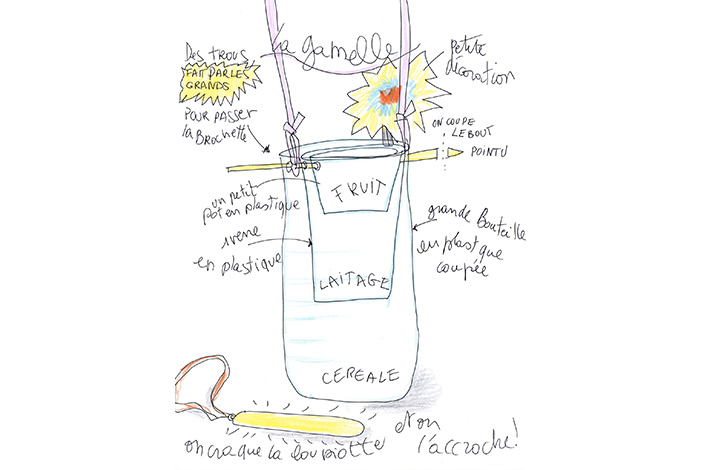 La gamelle
Des trous
FAIT PAR LES
GRANDS
POUR PASSER
la BROCHETTE
petite
décoration
ON COUPE
LE BOUT
POINTU
un petit
pot en plastique
FRUIT
verre
en plastique
grande Bouteille
en plastque
coupée
LAITAGE
CEREALE
on craque la loupiotte
et on
l'accroche!